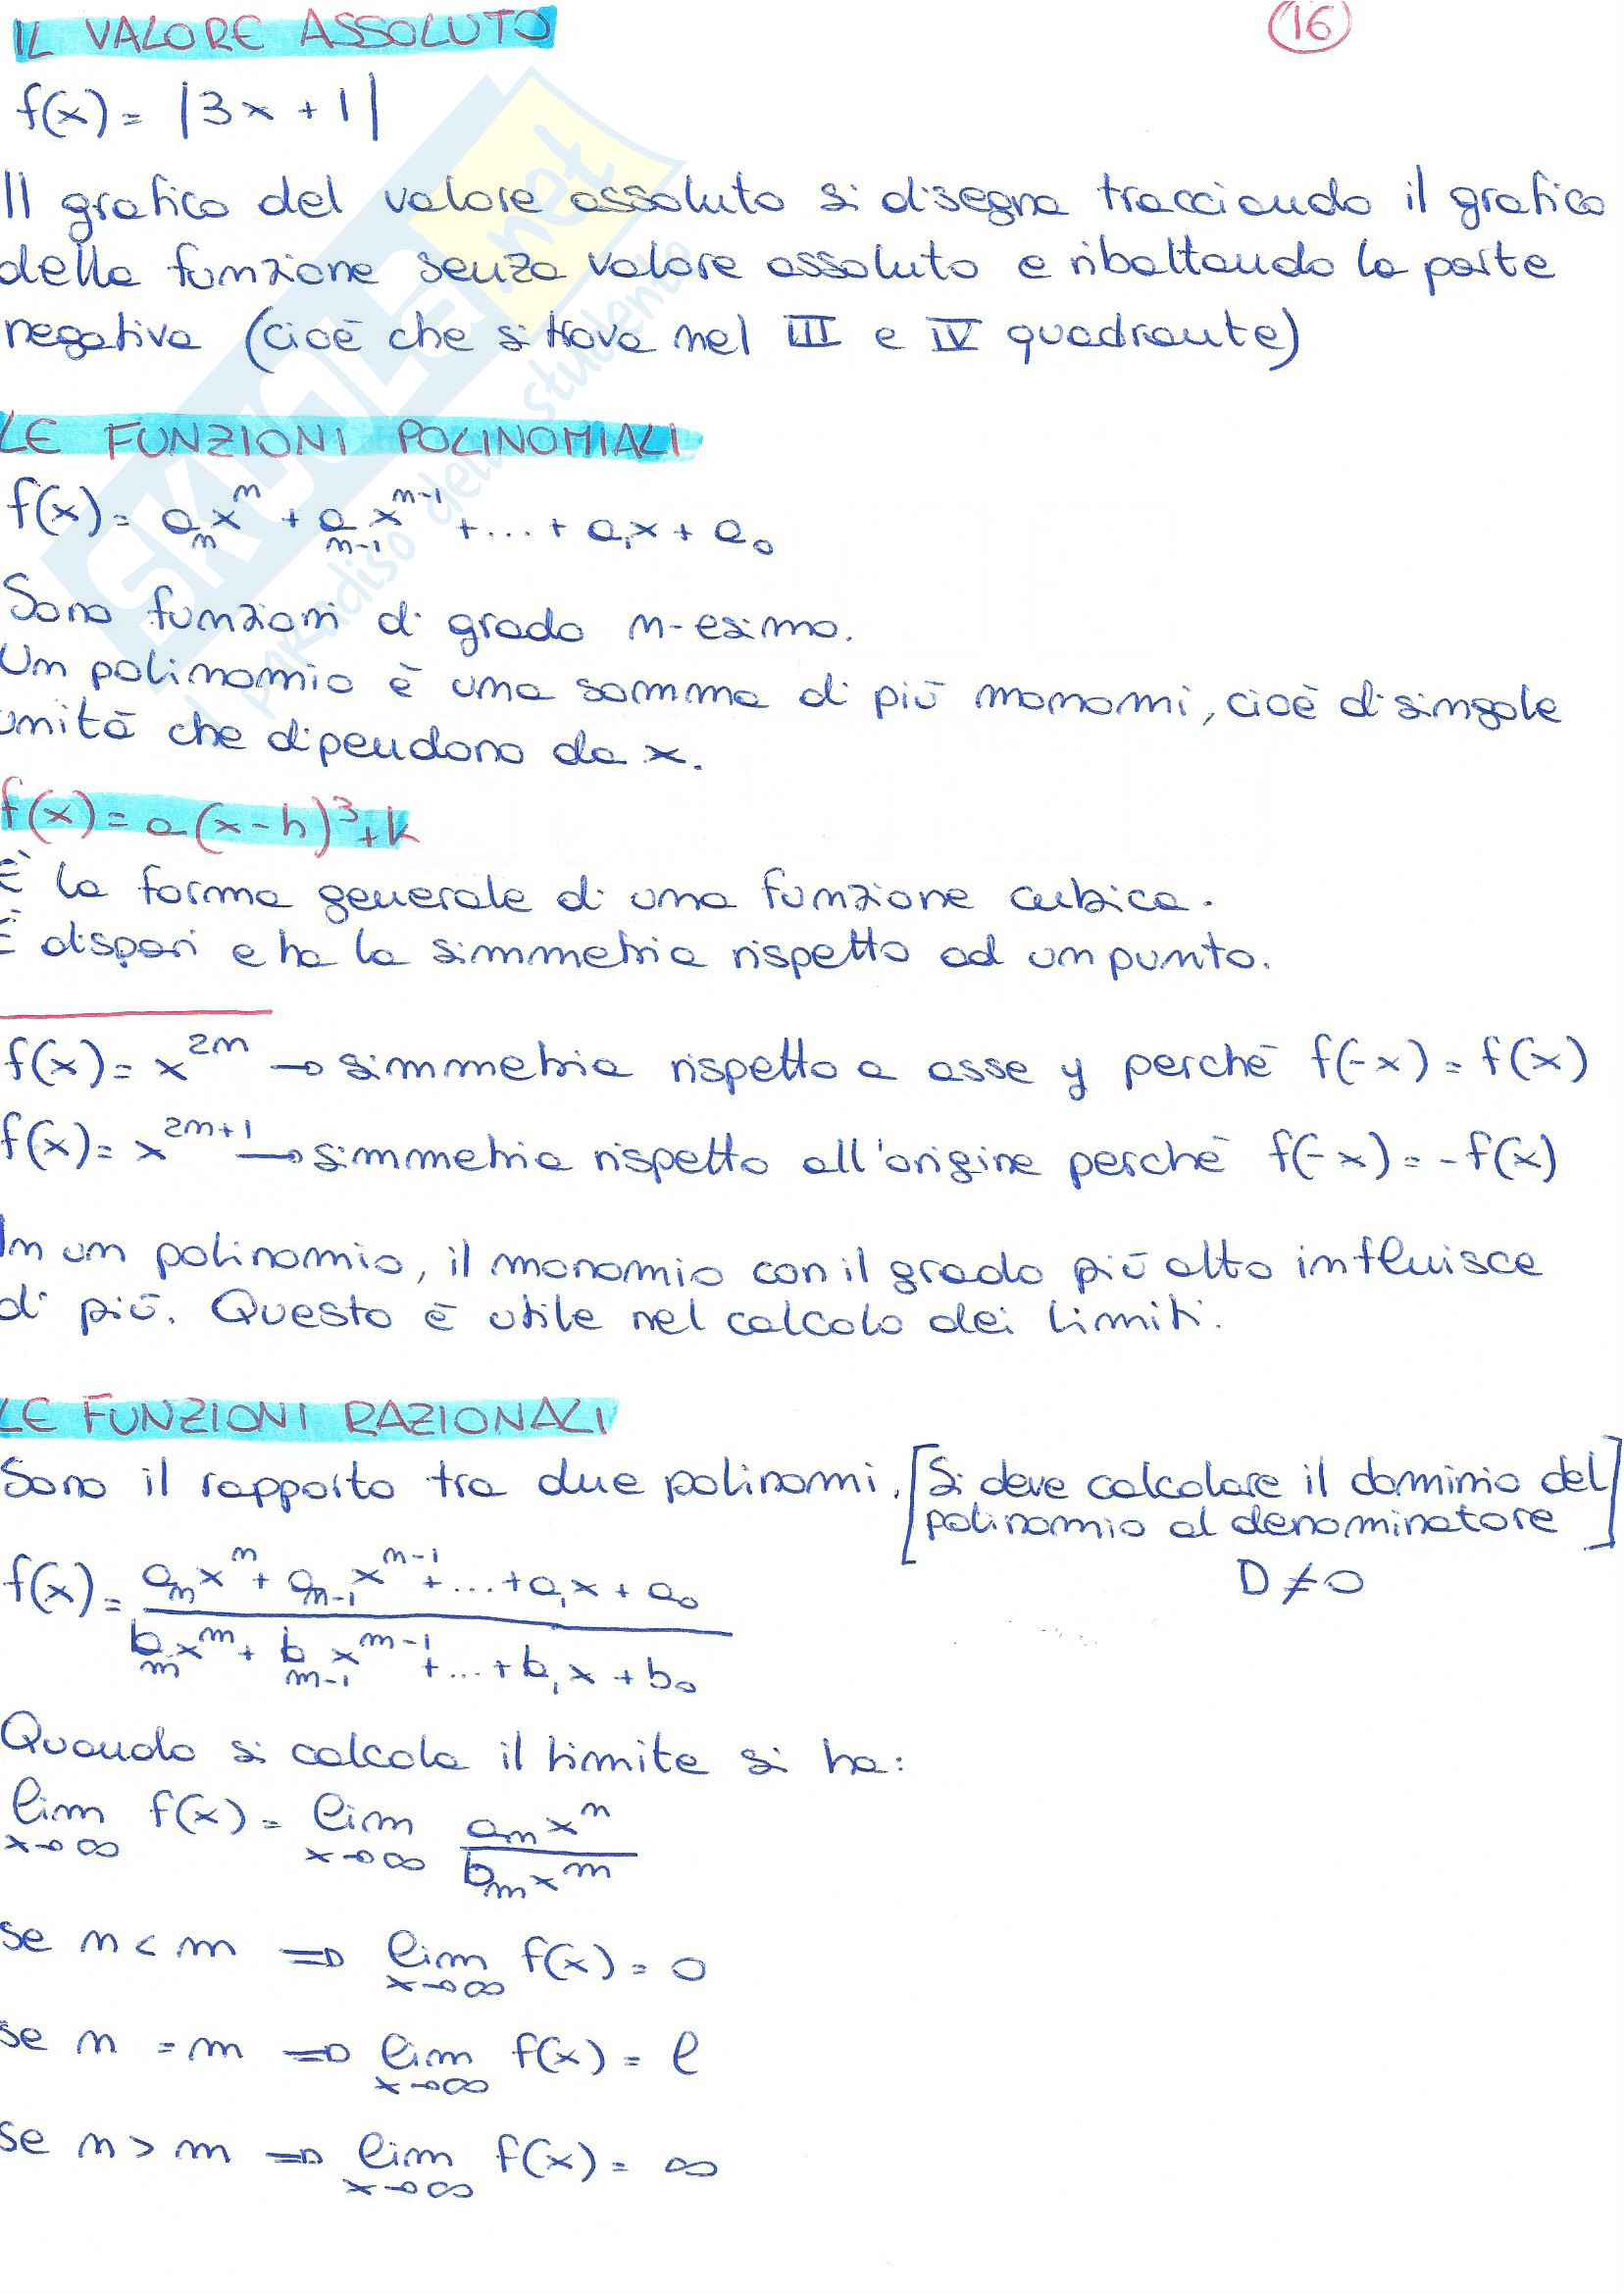 IL VALORE ASSOLUTO
16
f(x) = |3x + 1|
Il grafico del valore assoluto si disegna tracciando il grafico
della funzione senza valore assoluto e ribaltando la parte
negativa (cioè che si trova nel III e IV quadrante)
LE FUNZIONI POLINOMIALI
f(x) = aₙxⁿ + aₙ₋₁xⁿ⁻¹ + ... + a₁x + a₀
Sono funzioni di grado n-esimo.
Un polinomio è una somma di più monomi, cioè di singole
unità che dipendono da x.
f(x) = a(x-h)³+k
È la forma generale di una funzione cubica.
È dispari e ha la simmetria rispetto ad un punto.
f(x) = x²ⁿ → simmetria rispetto a asse y perchè f(-x) = f(x)
f(x) = x²ⁿ⁺¹ → simmetria rispetto all'origine perchè f(-x) = -f(x)
In un polinomio, il monomio con il grado più alto influisce
di più. Questo è utile nel calcolo dei limiti.
LE FUNZIONI RAZIONALI
Sono il rapporto tra due polinomi. [Si deve calcolare il dominio del
polinomio al denominatore]
D ≠ 0
f(x) = aₙxⁿ + aₙ₋₁xⁿ⁻¹ + ... + a₁x + a₀
bₘxᵐ + bₘ₋₁xᵐ⁻¹ + ... + b₁x + b₀
Quando si calcola il limite si ha:
lim f(x) = lim aₙxⁿ
x→∞ x→∞ bₘxᵐ
se n < m ⇒ lim f(x) = 0
x→∞
se n = m ⇒ lim f(x) = l
x→∞
se n > m ⇒ lim f(x) = ∞
x→∞
SKUOLA.net
il paradiso dello studente